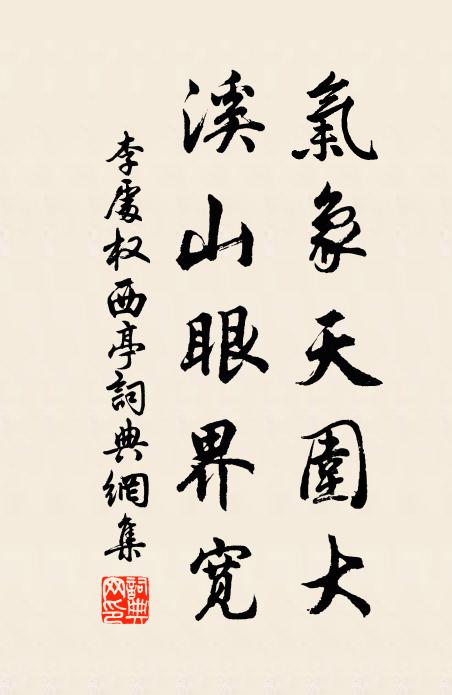 氣象天圍大
溪山眼界寬
李處权西亭詞典網集
詞典网印